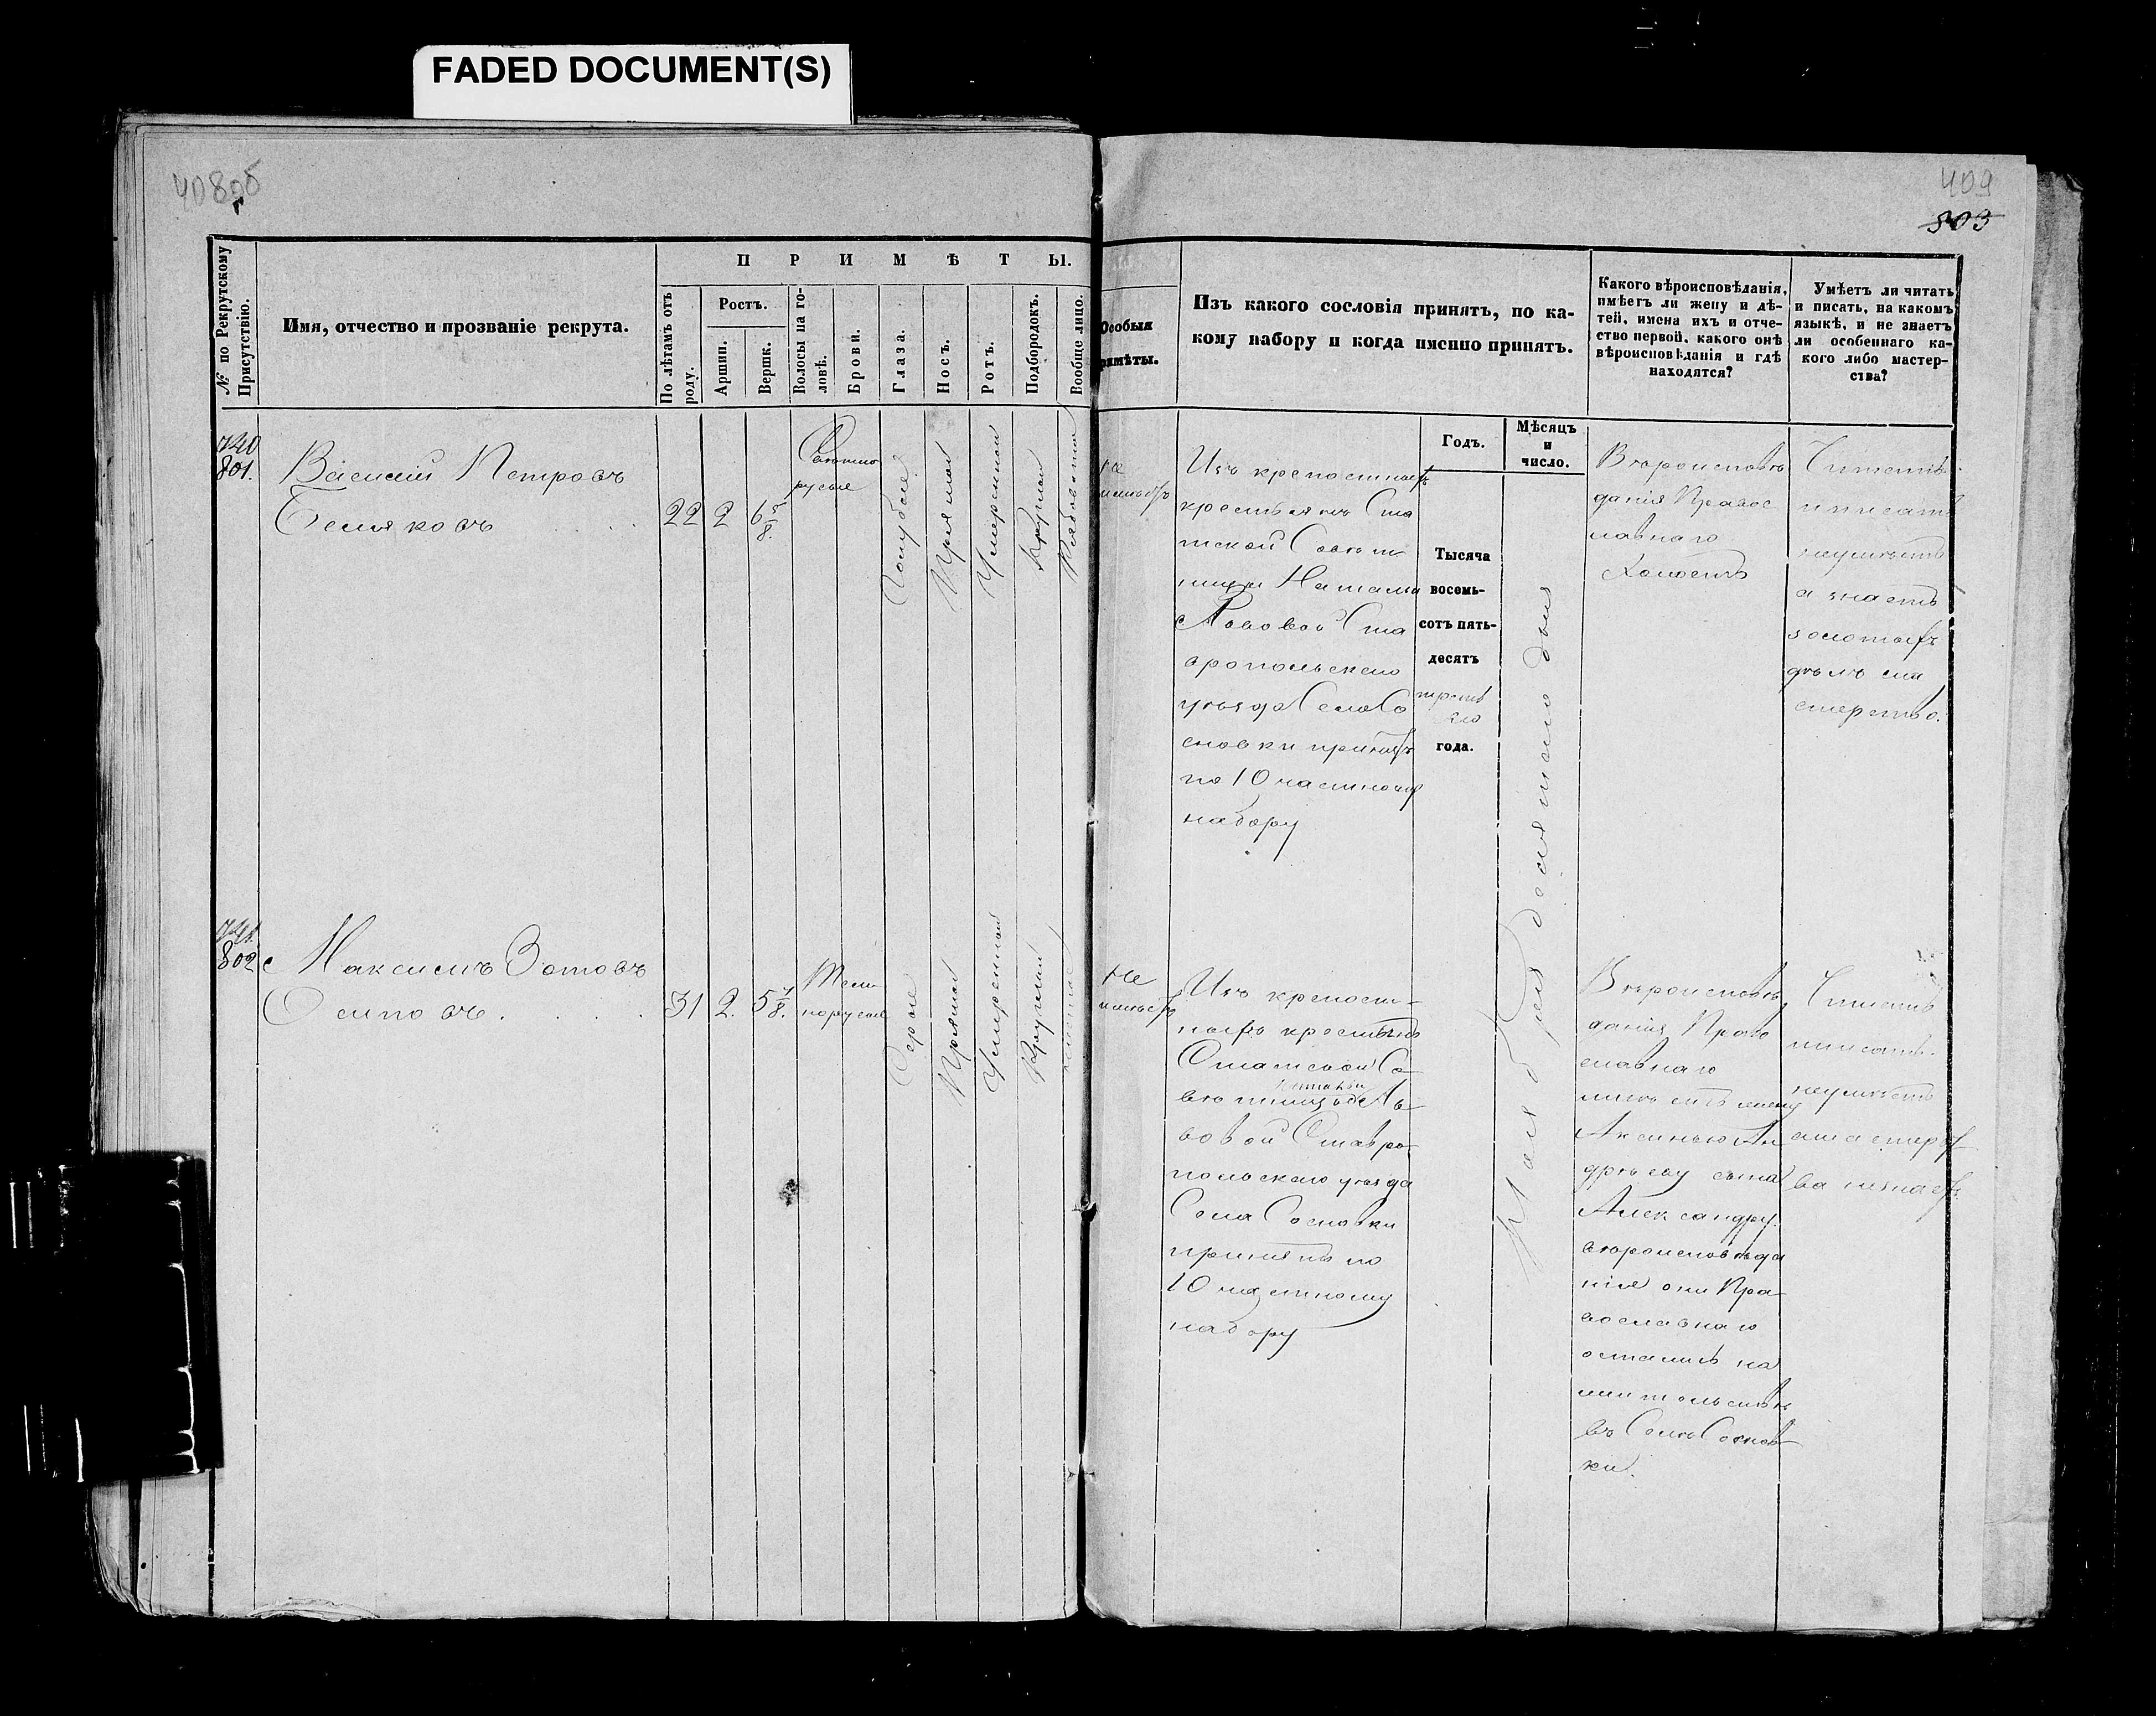 FADED DOCUMENT(S)
408об
409
803
№ по Рекрутскому Присутствію.
Имя, отчество и прозваніе рекрута.
ПРИМѢТЫ.
По лѣтамъ отъ роду.
Ростъ.
Аршин.
Вершк.
Волосы на головѣ.
Брови.
Глаза.
Носъ.
Ротъ.
Подбородокъ.
Вообще лицо.
Особыя
примѣты.
Изъ какого сословія принятъ, по ка-
кому набору и когда именно принятъ.
Какого вѣроисповѣданія,
имѣетъ ли жену и дѣ-
тей, имена ихъ и отче-
ство первой, какого онѣ
вѣроисповѣданія и гдѣ
находятся?
Умѣетъ ли читать
и писать, на какомъ
языкѣ, и не знаетъ
ли особеннаго ка-
кого либо мастер-
ства?
Годъ.
Мѣсяцъ
и
число.
740
801.
Василій Петровъ
Беляковъ
22
2
6 5/8.
Свѣтло
русые
Голубые
Прямой
Умеренной
Круглой
Рябоватое
не
имѣетъ
Изъ крепостныхъ
крестьянъ Ста
тской Совѣт
ницы Натальи
Львовой Ста
вропольскаго
уѣзда Села Со
сновки принятъ
по 10 частному
набору
Тысяча
восемь-
сотъ пять-
десятъ
третьяго
года.
Мая десятаго дня
Вѣроисповѣ
данія Правос
лавнаго
Холостъ
Читать
и писать
неумѣетъ
а знаетъ
золотыхъ
дѣлъ ма
стерство.
741.
802
Максимъ Зотовъ
Осиповъ.
31
2.
5 7/8.
Темно
русые
Серые
Прямой
Умеренный
Круглый
чистое
не
имѣетъ
Изъ крепост-
ныхъ крестьянъ
Статской Со-
вѣтницы Натальи Ль-
вовой Ставро-
польскаго уѣзда
Села Сосновки
принятъ по
10 частному
набору
Вѣроисповѣ
данія Право
славнаго
имѣетъ жену
Аксинью Ан
дрѣеву сына
Александру.
вѣроисповѣда
нія они Пра-
вославнаго
остались на
жительствѣ
въ Селѣ Соснов-
ки.
Читать
писать
неумѣетъ
и мастерст
ва незнаетъ.